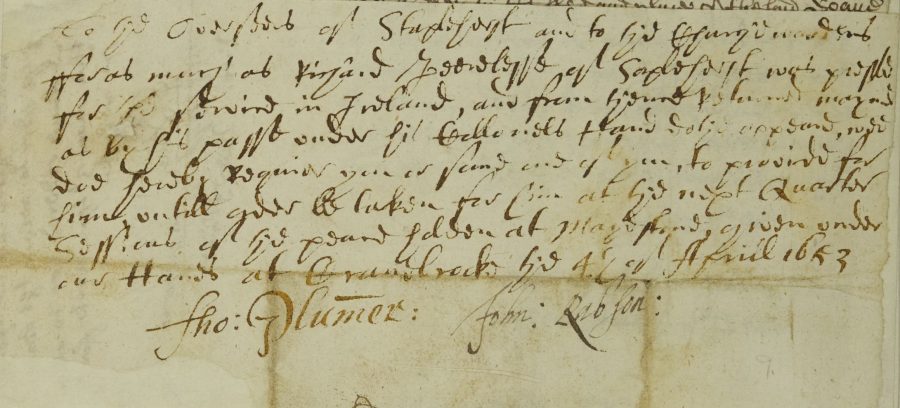 To the Overseers of Staplehest and to the Churchwardens
fforas much as Richard Peerelesse of Staplehest was pressed
for the service in Ireland, and from thence Returned maymed
as by his passe under his Collonels Hand doth appeare, wee
doe hereby Requier you or some one of you, to provide for
him untill order be taken for him at the next Quarter
Sessions of the peace holden at Maydstone, given under
our Hands at Cranebrooke the 4th of Aprill 1653
Tho: Plumer: John: Rabson: